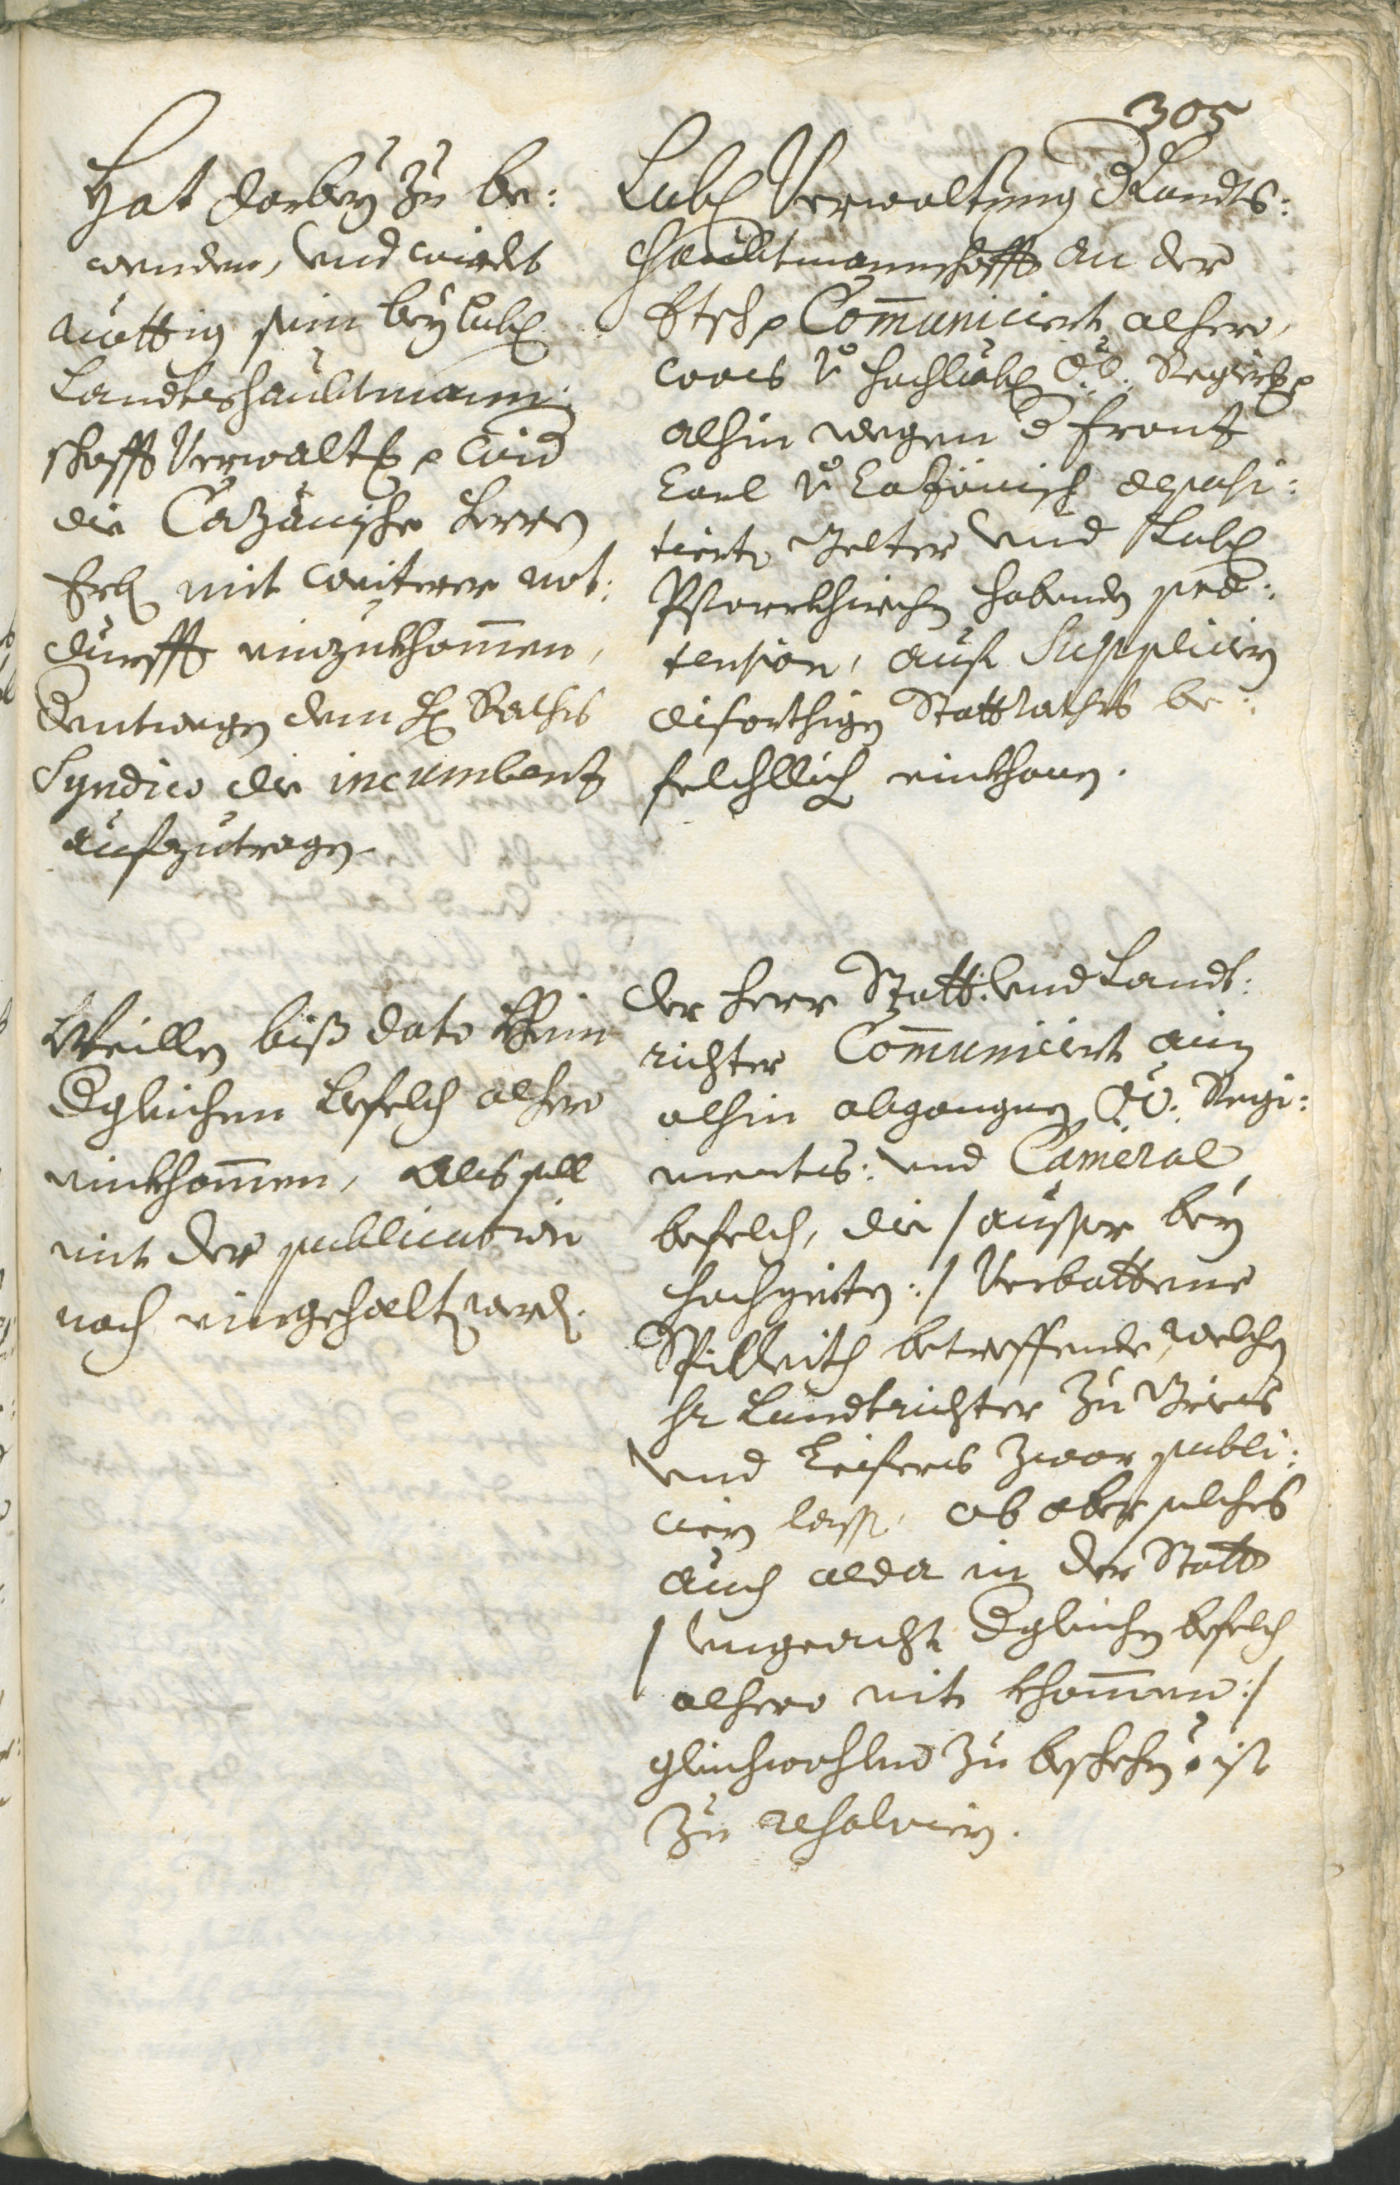 305
Hat darbey zu be:
wenden, und wierdt
nöttig sein bey Lobl.
Landtshaubtman:
schafft Verwalt. wid
die Cazänische Herren
Erb. mit weiterer not:
durfft einzukhom̄en,
dentwegen dem H. Raths
Syndico die incumbenz
aufzutragen.
Lobl. Verwaltung d Landts:
haubtmannschafft an der
Etsch Com̄uniciert alhero,
was v. hochlöbl. O.Ö. Regier.
alhin wegen d Franz
Carl v. Cazänisch deposi:
tierte Gelter und Lobl.
Pfarrkhirchen habenden prae:
tension, auf Supplicirn
diserthigen Stattraths be:
felchllich einkhomen.
Weillen biß dato khein
dgleichen befelch alhero
einkhom̄en, Als soll
mit der publication
noch eingehalten werd.
Der Herr Statt: und Landt:
richter Com̄uniciert ain
alhin abgangnen O.Ö. Regi:
ments: und Cameral
befelch, die /ausser bey
hochzeiten:/ Verbottene
Spilleith betreffende, welchen
Hr Landtrichter zu Gries
und Leifers zwar publi:
cirn lassen, ob aber solches
auch alda in der Statt
/ ungeacht dgleichen befelch
alhero nit khom̄en:/
gleichwohlen zu beschehen? ist
zu resolviern.